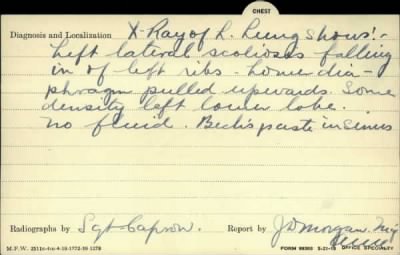 CHEST
Diagnosis and Localization X-Ray of L. Lung shows:-
Left lateral scoliosis falling
in of left ribs - home dia-
phragm pulled upwards. Some
density left lower lobe.
No fluid. Beck's paste in sinus
Radiographs by Sgt. Capron. Report by J D Morgan. Maj
M.F.W. 2511
FORM 99303 5-21-18 OFFICE SPECIALTY